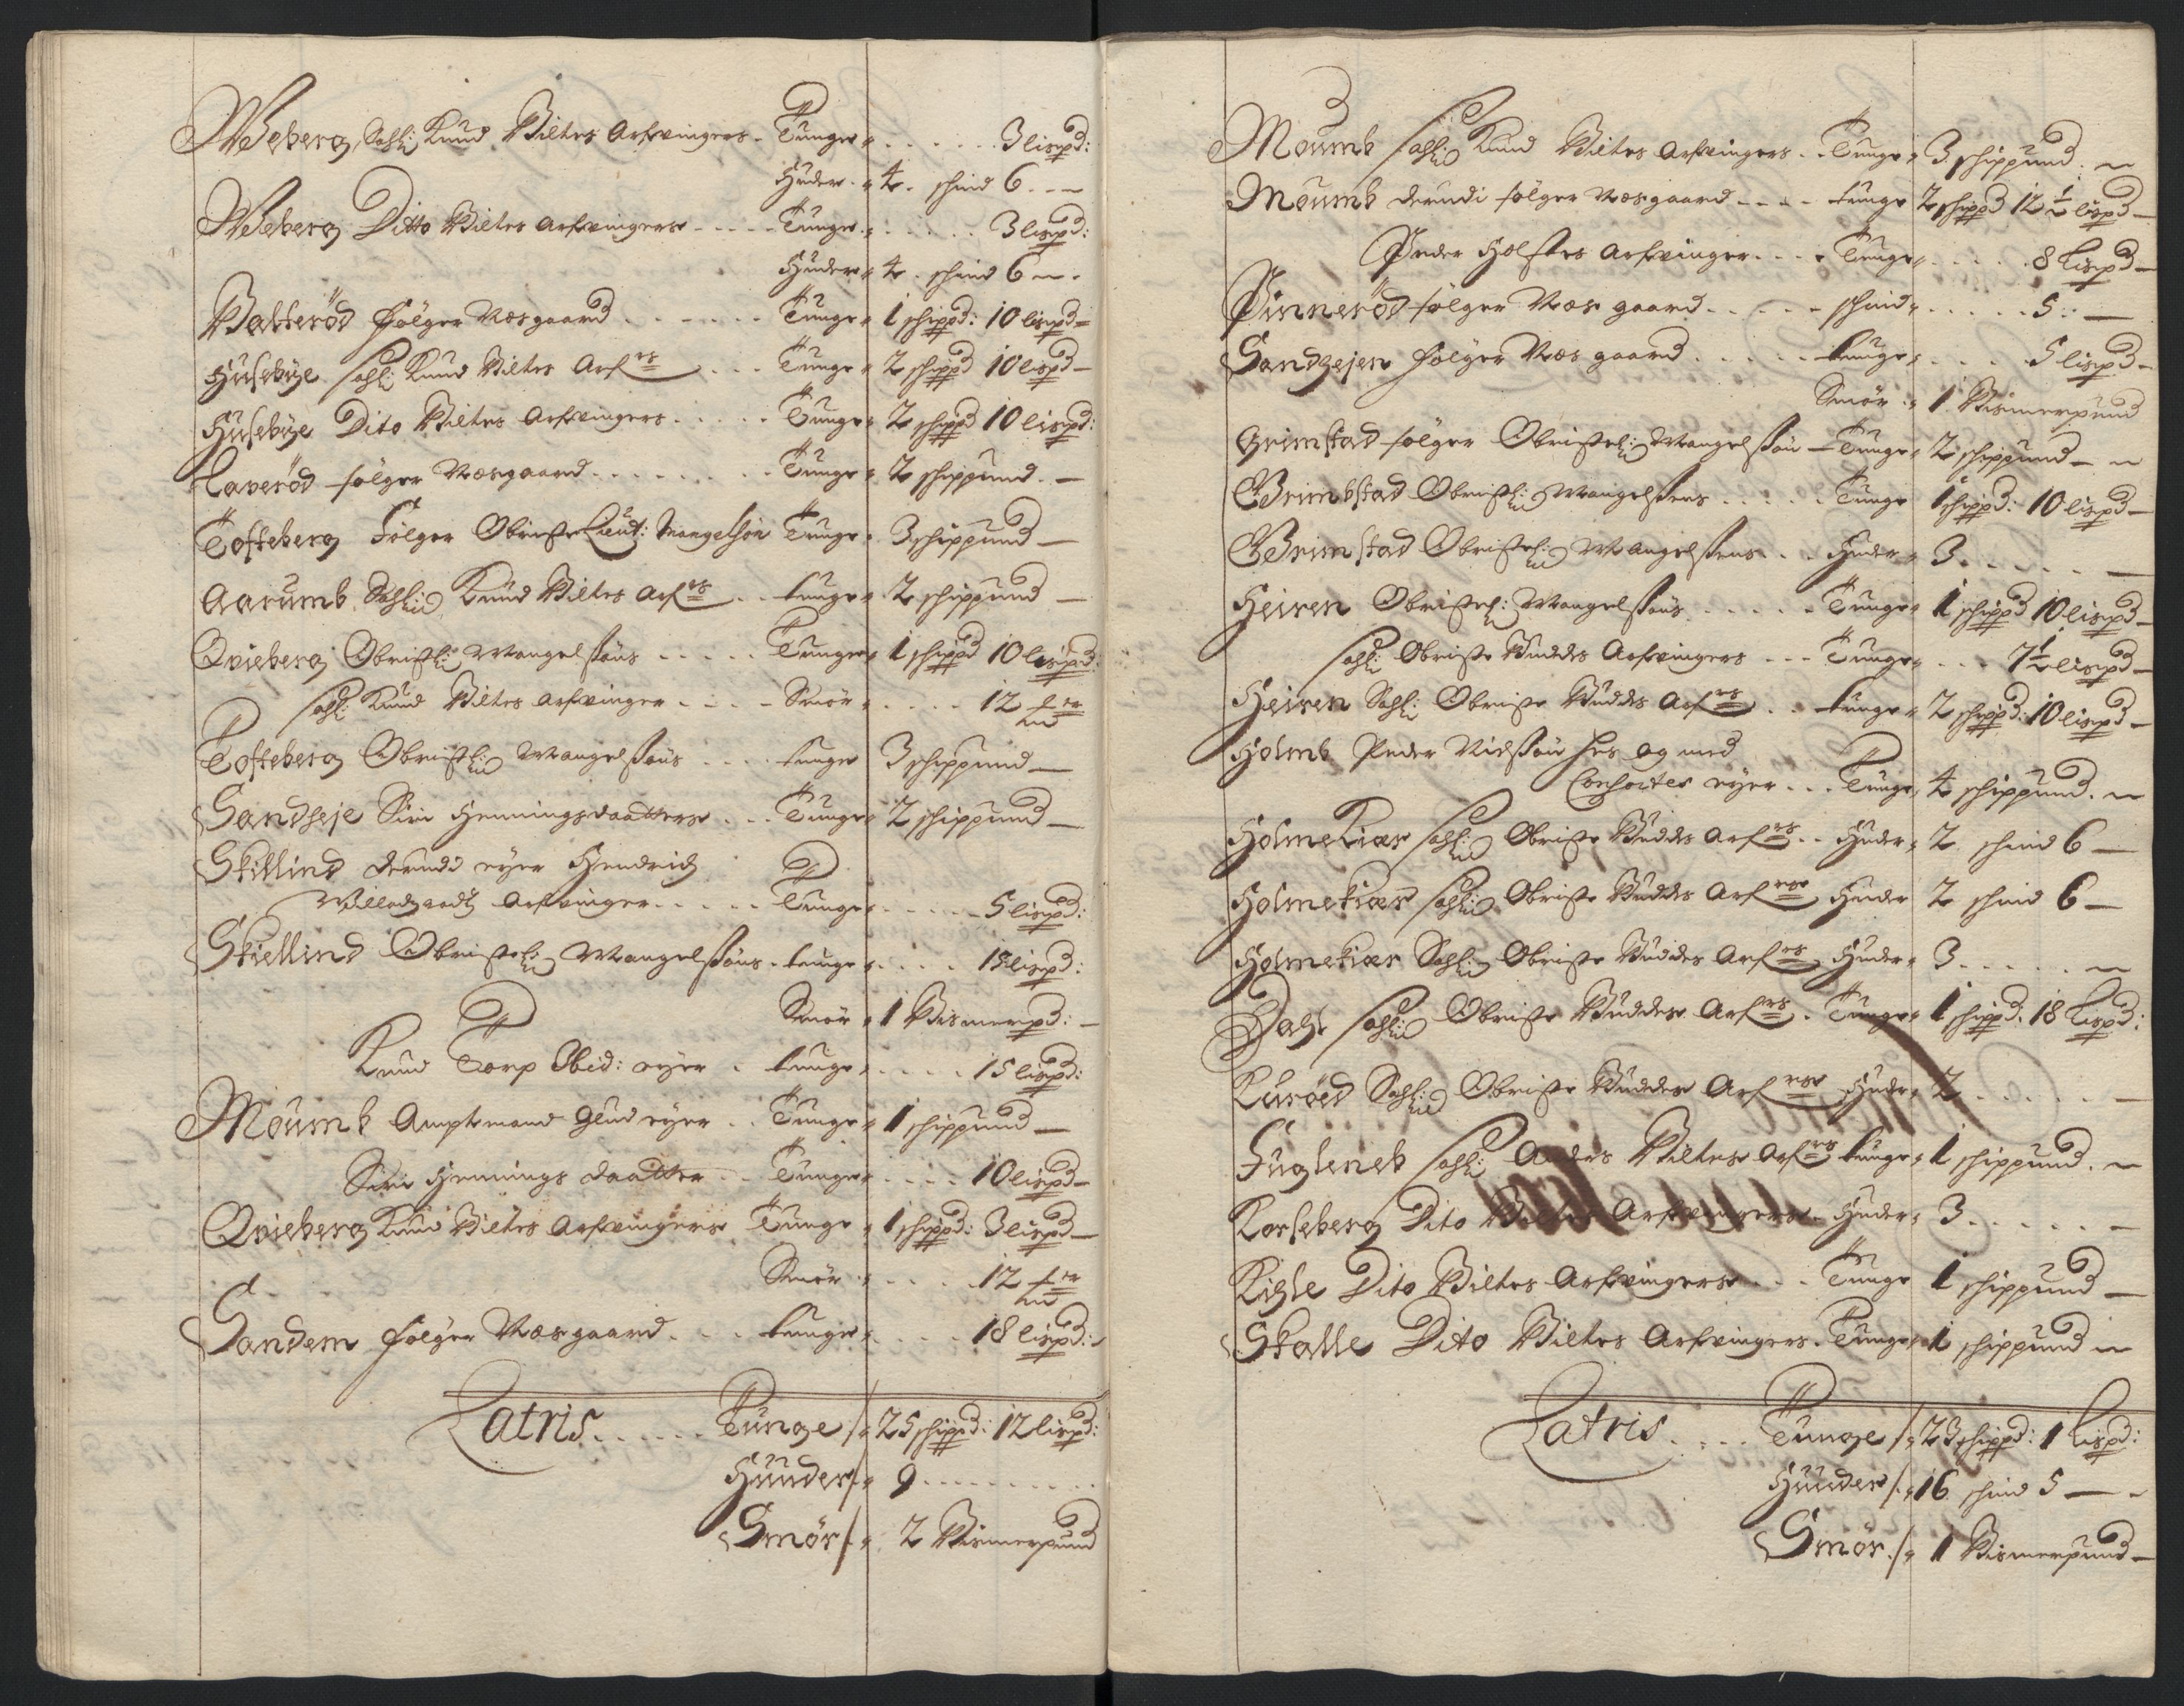 Weeberg, Sahlig Knud Biltes Arfvingers - Tunge " . . . . . . 3 lispd:
Huder . " 4 . schind 6 . . ~
Weeberg Ditto Biltes Arfvingers - - - - - Tunge " . . . . . 3 lispd:
Huder " 4 . schind 6 ~ .
Batterød følger Næsgaard . . . . . . . Tunge " 1 schippd: 10 lispd =
Husebye Sahl: Knud Biltes Arfrs . . . Tunge " 2 schippd 10 lispd -
Husebye Dito Biltes Arfvingers . . . . . Tunge " 2 schippd 10 lispd:
Haverød følger Næsgaard . . . . . . . . Tunge " 2 schippund . -
Tofteberg Følger Obriste Lieut: Mangelsøn Tunge " 3 schippund -
Aarumb Sahlig Knud Biltes Arfrs . . tunge " 2 schippund -
Qvieberg Obristl: Mangelsøns - - - - - Tunge " 1 schippd 10 lispd:
Sahl: Knud Biltes Arfvinger - - - - Smør " . . . . 12
Tofteberg Obristl: Mangelsøns . . . . tunge 3 schippund -
Sandheje Siri Henningsdaatters . . . Tunge " 2 schippund -
Skillind derudi eyer Hendrich
Arfvinger . . . . . Tunge " . . . . . 5 lispd:
Skiellind Obristl: Mangelsøns . tunge " . . . . 15 lispd:
Smør " 1 Bismerpd: -
Knud Torp ibid: eyer . tunge " . . . . 15 lispd:
Moumb Amptmand Glud eyer . . Tunge " 1 schippund -
Siri Hennings daatter - - Tunge " . . . . 10 lispd -
Qvieberg Knud Biltes Arfvingers Tunge " 1 schippd: 3 lispd -
Smør . " . . . . 12
Sandem følger Næsgaard . . . tunge " . . . . 18 lispd:
Latris . . . . . . Tunge /" 25 schippd: 12 lispd:
Huuder /" 9 . . . . . . . . .
Smør /. " 2 Bismerpund
Moumb Sahlig Knud Biltes Arfvingers . . Tunge " 3 schippund . ~
Moumb derudi følger Næsgaard - - - - tunge 2 schippd 12 ½ lispd -
Peder Holstes Arfvinger . . . . Tunge " . . . . . 8 Lispd -
Pinnerød følger Næs gaard . . . . . schind " . . . . . 5 : -
Sandhejen følger Næs gaard . . . . . tunge " . . . . 5 lispd -
Smør . " 1 Bismerpund
Grimstad følger Obristel: Mangelsøn - Tunge " 2 schippund - ~
Grimbstad Obristl: Mangelsens . . . . . Tunge 1 schippd: 10 lispd -
Grimstad Obristel: Mangelsens . . . Huder " 3 . . . . . -
Heiren Obristel: Mangelsøns . . . . . . Tunge " 1 schippd 10 lispd -
Sahl: Obriste Buddes Arfvingers - - - Tunge " . . . 7 ½ lispd -
Heiren Sahl: Obriste Buddes Arfrs . . tunge " 2 schippd: 10 lispd -
Holmb Peder Nielsøn og med
Consorter eyer . . . Tunge " 4 schippund . ~
Holmekiær Sahlig Obriste Buddes Arfrs . . Huder " 2 schind 6 -
Holmekiær Sahlig Obriste Buddes Arfrs Huder 2 schind 6 -
Holmekiær Sahlig Obriste Buddes Arfrs Huder " 3 . . . . . ~
Dahl Sahlig Obriste Buddes Arfrs . Tunge " 1 schippd. 18 Lispd:
Kurøed Sahlig Obriste Buddes Arfrs Huder " 2 . . . . . . -
Fugleneb Sahl: Anders Biltes Arfrs tunge " 1 schippund . ~
Korseberg Dito Biltes Arfvingers . Huder " 3 . . . . . . -
Kihle Dito Biltes Arfvingers . . . Tunge 1 schippund -
Skalle Dito Biltes Arfvingers . Tunge " 1 schippund ~
Latris . . . . Tunge /" 23 schippd: 1 Lispd:
Huuder /" 16 schind 5 - ~
Smør /. " 1 Bismerpund -